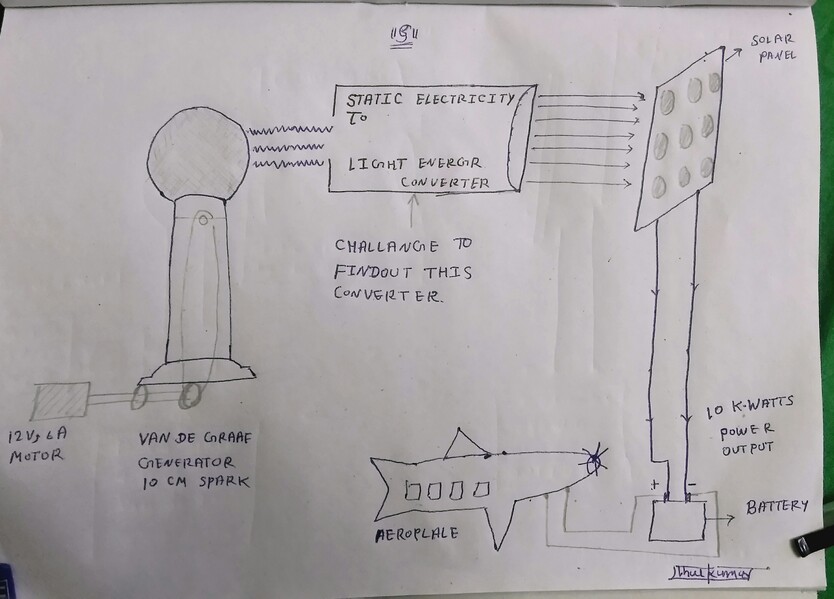 "5"
SOLAR
PANEL
STATIC ELECTRICITY
To
LIGHT ENERGR
CONVERTER
CHALLANGE TO
FINDOUT THIS
CONVERTER.
12V, 6A
MOTOR
VAN DE GRAAF
GENERATOR
10 CM SPARK
10 K-WATTS
POWER
OUTPUT
+ -
BATTERY
AEROPLALE